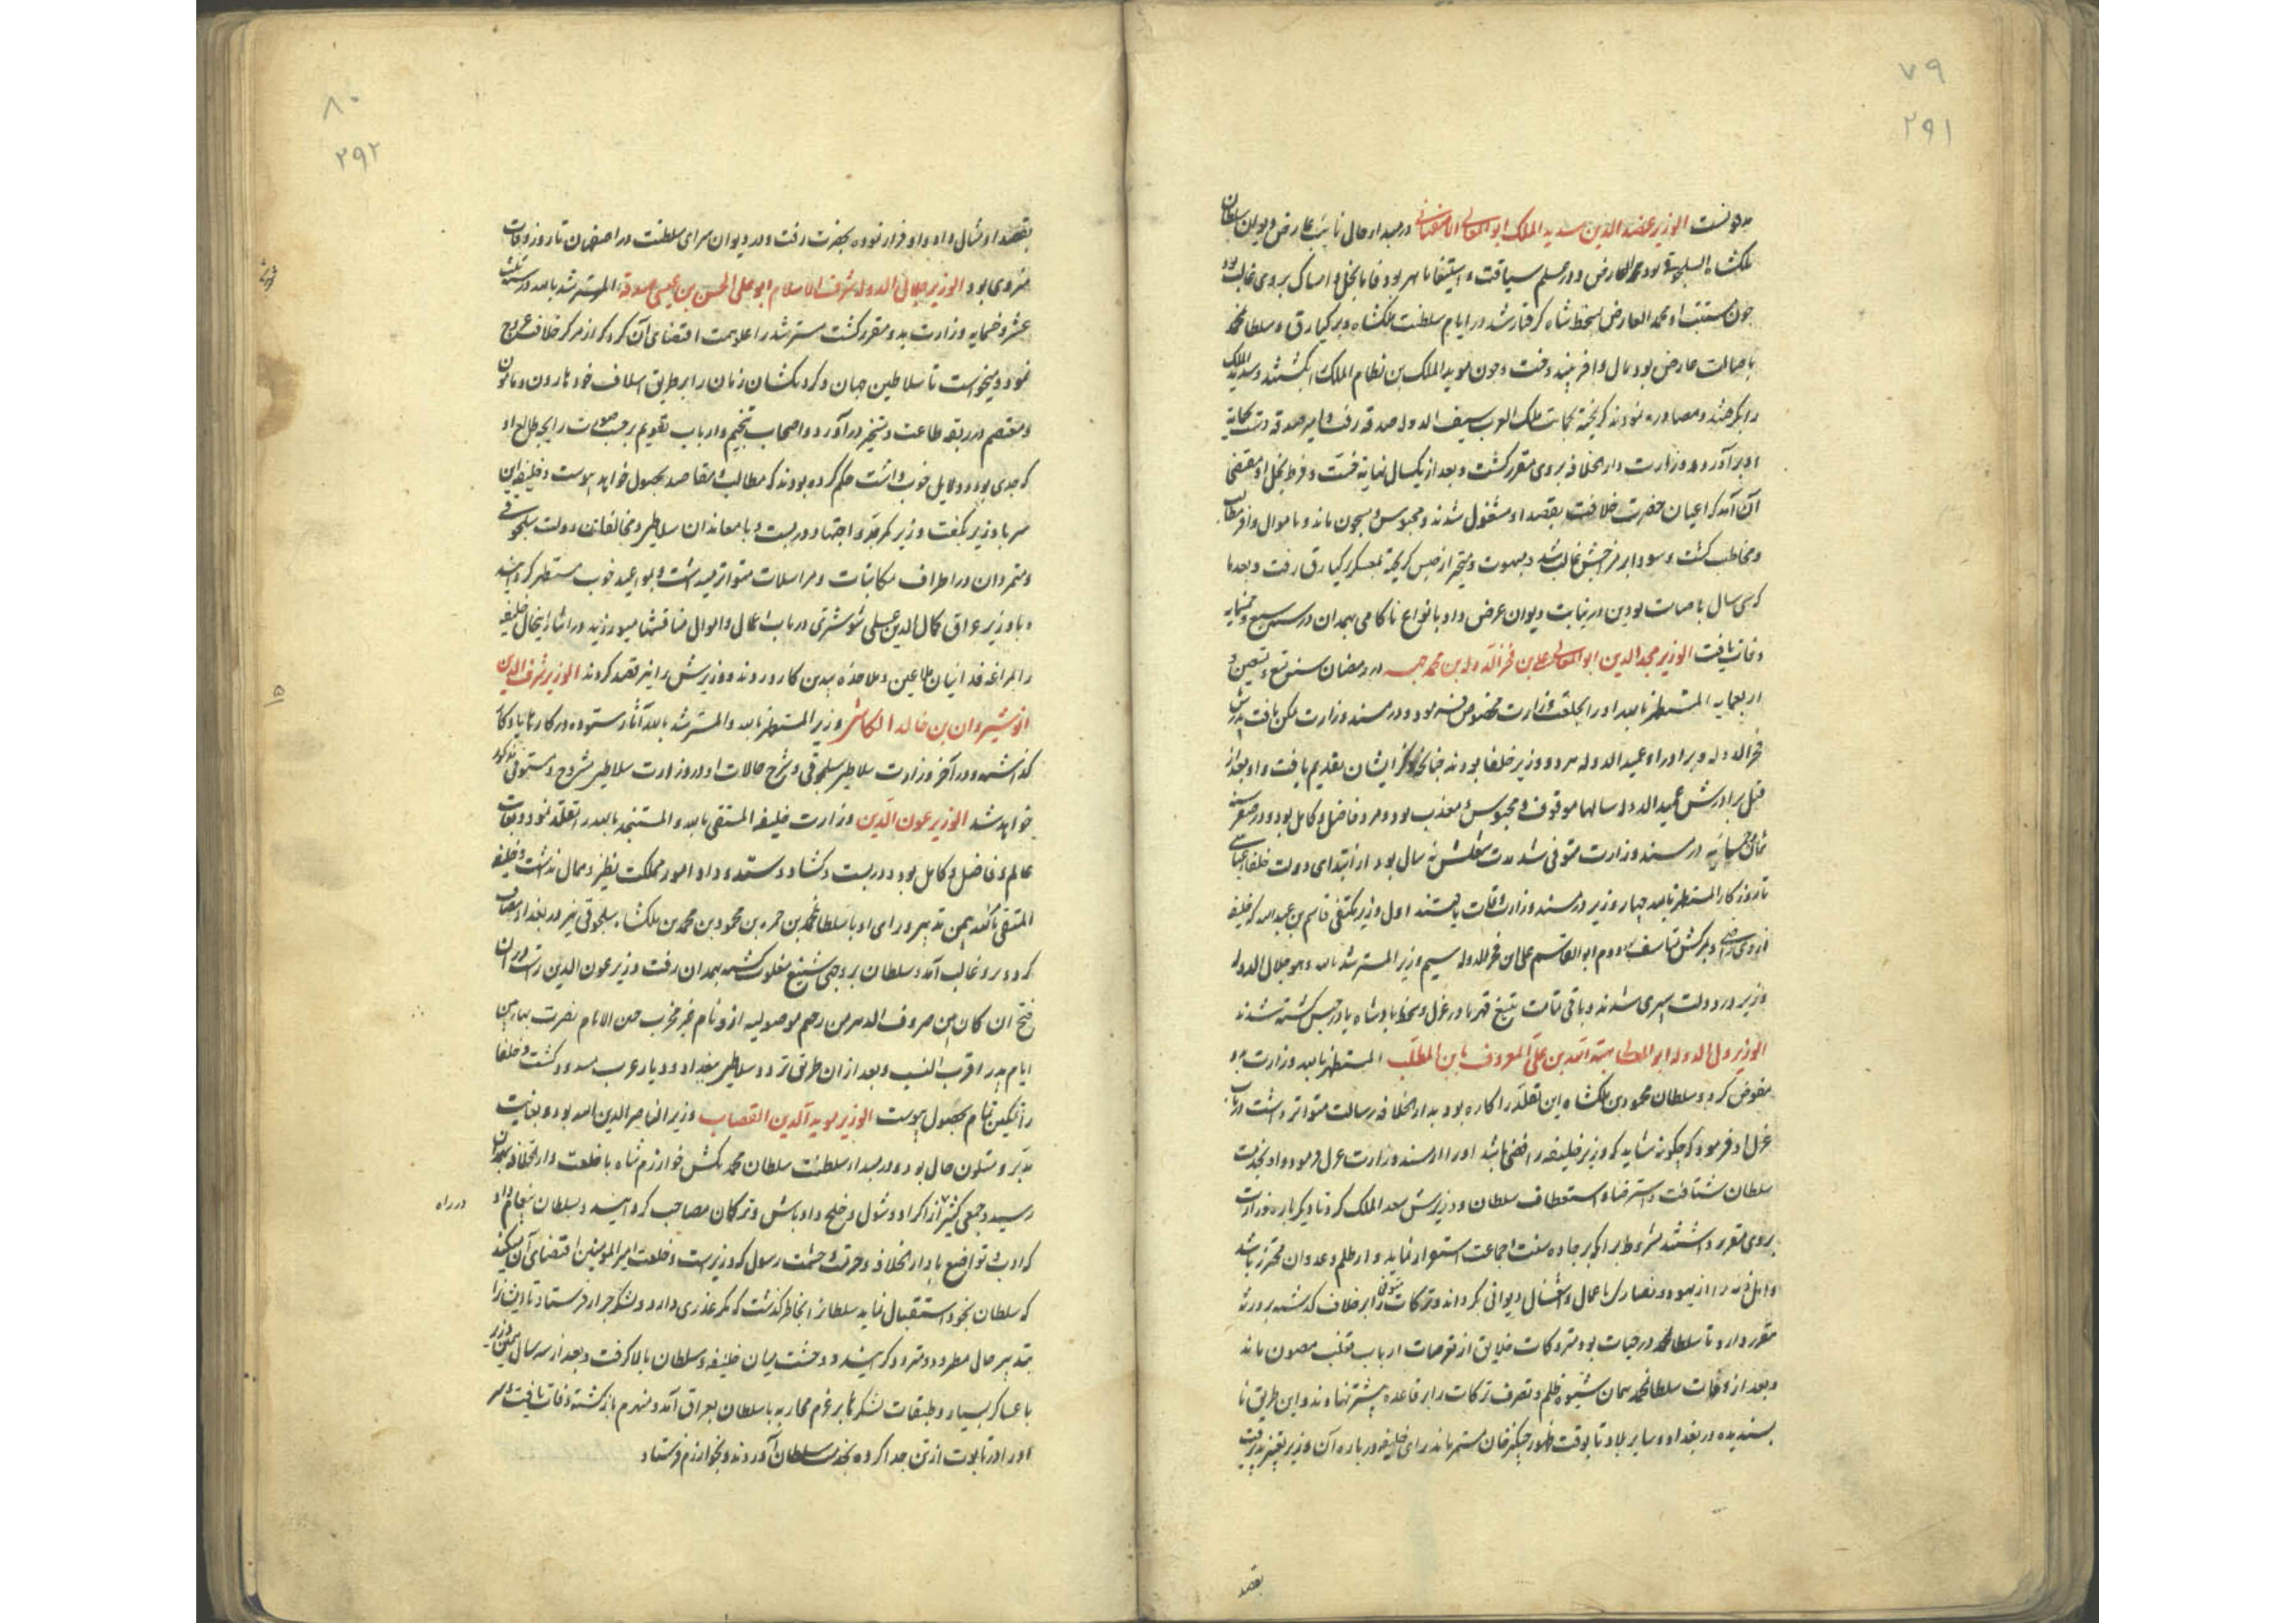 ۷۹
۲۹۱
الوزیر عضد الدین سدید الملک ابو المعالی در مبدا حال نایب عارض دیوان سلطان
ملکشاه بود محمد العارض و در علم سیاقت و استیفا ماهر بود فاما بخل و امساک بر وی غالب بود
چون محمد العارض بسخط شاه گرفتار شد در ایام سلطنت ملکشاه و برکیارق و سلطان محمد
باصالت عارض بود مال وافر و چون موید الملک بن نظام الملک را بکشتند و سدید الملک
را بگرفتند و مصادره نمودند گریخته بجانب ملک العرب سیف الدوله صدقه رفت و امیر صدقه
او برآورد و وزارت دار الخلافه بر وی مقرر گشت و بعد از یکسال و فرط بخل او مقتضی
آن آمد که اعیان حضرت خلافت بقصد او مشغول شدند و محبوس و مسجون ماند و باموال وافر مطالب
و مخاطب گشت و سودا بر مزاجش غالب شد و مبهوت و متحیر از حبس گریخته بمعسکر برکیارق رفت و بعد ما
که سی سال باصالت بودن در نیابت دیوان عرض داد بانواع ناکامی بهمدان در سنه سبع و خمسمایه
وفات یافت الوزیر مجد الدین ابو المعالی علی بن فخر الدوله بن محمد جهیر در رمضان سنه تسع و تسعین و
اربعمایه المستظهر بالله او را بخلعت وزارت مخصوص فرمود و در مسند وزارت تمکن یافت پدرش
فخر الدوله و برادر او عمید الدوله هر دو وزیر خلفا بودند چنانکه ذکر ایشان تقدیم یافت و او بعد از
قتل برادرش عمید الدوله سالها موقوف و محبوس و معذب بود و مرد فاضل و کامل بود و در صفر سنه
ثمان و خمسمایه در مسند وزارت متوفی شد مدت شغلش نه سال بود از ابتدای دولت خلفاء عباسی
تا روزگار المستظهر بالله چهار وزیر در مسند وزارت وفات یافتند اول وزیر مکتفی قاسم بن عبید الله که خلیفه
از وی راضی و بر مرگش متاسف دوم ابو القاسم علی بن فخر الدوله سیم وزیر المسترشد بالله و هو جلال الدوله
وزیر در دولت اسپری شدند و باقی بتیغ قهر یا در عزل و سخط پادشاه یا در حبس کشته شدند
الوزیر ولی الدوله ابو المعالی هبة الله بن علی المعروف بابن المطلب المستظهر بالله وزارت بدو
مفوض کرد و سلطان محمود بن ملکشاه این تقلد را کاره بود بدار الخلافه رسالت متواتر داشت در باب
عزل او فرمود که چگونه شاید که وزیر خلیفه رافضی باشد او را از مسند وزارت عزل فرمود و او بخدمت
سلطان شتافت و استرضا و استعطاف سلطان و وزیرش سعد الملک کرد تا دیگر باره وزارت
بر وی مقرر داشتند مشروط بر آنکه بر جاده سنت و جماعت استمرار نماید و از ظلم و عدوان محترز باشد
و اهل ذمه را از یهود و نصاری باعمال و اشغال دیوانی نگرداند و ترکات متوفی را بر خلاف گذشته بر ورثه
مقرر دارد تا سلطان محمد در حیات بود متروکات خلایق از تعرضات ارباب تغلب مصون ماند
و بعد از وفات سلطان محمد همان شیوه ظلم و تصرف ترکات را بر قاعده پیشتر نهادند و این طریق نا
پسندیده در بغداد و سایر بلاد تا بوقت ظهور چنگیز خان مستمر ماند رای خلیفه در باره آن وزیر تغیر پذیرفت
بقصد
۸۰
۲۹۲
بقصد او مثال داد و او فرار نموده بحضرت رفت و در دیوان سرای سلطنت در اصفهان تا روز وفات
منزوی بود الوزیر جلال الدوله شرف الاسلام ابو علی الحسن بن علی صدقه المسترشد بالله در سنه ثلث
عشر و خمسمایه وزارت بدو مقرر گشت مسترشد را علو همت اقتضای آن کرد که از مرکز خلافت عروج
نمود و میخواست تا سلاطین جهان و گردنکشان زمان را بر طریق اسلاف خود هارون و مامون
و معتصم در ربقه طاعت و تسخیر درآورد و اصحاب تنجیم و ارباب تقویم بر حسب رایجه طالع او
که جدی بود و دلایل خوب داشت حکم کرده بودند که مطالب و مقاصد بحصول خواهد پیوست و خلیفه این
سر با وزیر بگفت وزیر کمر جد و اجتهاد در بست و با معاندان سلاطین و مخالفان دولت سلجوقی
و متمردان در اطراف مکاتبات و مراسلات متواتر میداشت و بمواعید خوب مستظهر گردانید
و با وزیر عراق کمال الدین علی در باب اعمال و اموال مناقشتها میورزید در اثناء اینحال خلیفه
را بمراغه فداییان ملاعین و ملاحده بدین کار و وزیرش را نیز قصد کردند الوزیر شرف الدین
انوشیروان بن خالد الکاشی وزیر المستظهر بالله و المسترشد بالله آثار ستوده در کارنامه یادگار
گذاشت و در آخر وزارت سلاطین سلجوقی و شرح حالات او در وزارت سلاطین مشروح و مستوفی مذکور
خواهد شد الوزیر عون الدین وزارت خلیفه المقتفی بالله و المستنجد بالله را تقلد نمود و بغایت
عالم و فاضل و کامل بود و در بست و گشاد و ستد و داد امور مملکت نظیر و همال نداشت و خلیفه
المقتفی بالله بیمن تدبیر و رای او با سلطان محمد بن محمود بن محمد بن ملکشاه سلجوقی نیز در بغداد مصاف
کرد و برو غالب آمد و سلطان بر وجهی شنیع مغلوب گشته بهمدان رفت وزیر عون الدین راست در آن
فتح ان کان من صروف الدهر من رحم موصولیه
ایام بدر اقرب النسب و بعد از آن طریق تردد سلاطین ببغداد و دیار عرب مسدود گشت و خلفا
را تمکین تمام بحصول پیوست الوزیر موید الدین القصاب وزیر الناصر لدین الله بود و بغایت
مدبر و متلون حال بود و در مبدا سلطنت سلطان محمد تکش خوارزم شاه با خلعت دار الخلافه بهمدان
رسید و جمعی کثیر از اکراد و شول و خلج و اوباش و ترکان مصاحب گردانید و سلطان پیغام داد
که ادب و تواضع با دار الخلافه و حرمت و حشمت رسول که وزیر است و خلعت امیر المومنین اقتضای آن میکند
که سلطان بخود استقبال نماید سلطان را بخاطر گذشت که مکر و غدری دارد و لشکر جرار فرستاد تا
بتدبیر حال مطرود و متردد گردانید و وحشت میان خلیفه و سلطان بالا گرفت و بعد از سه سال همین وزیر
با عساکر بسیار و طبقات لشکر بر عزم محاربه با سلطان بعراق آمد و منهزم بازگشته وفات یافت و سر
او را در تابوت از تن جدا کرده بخدمت سلطان آوردند و بخوارزم فرستاد
در راه